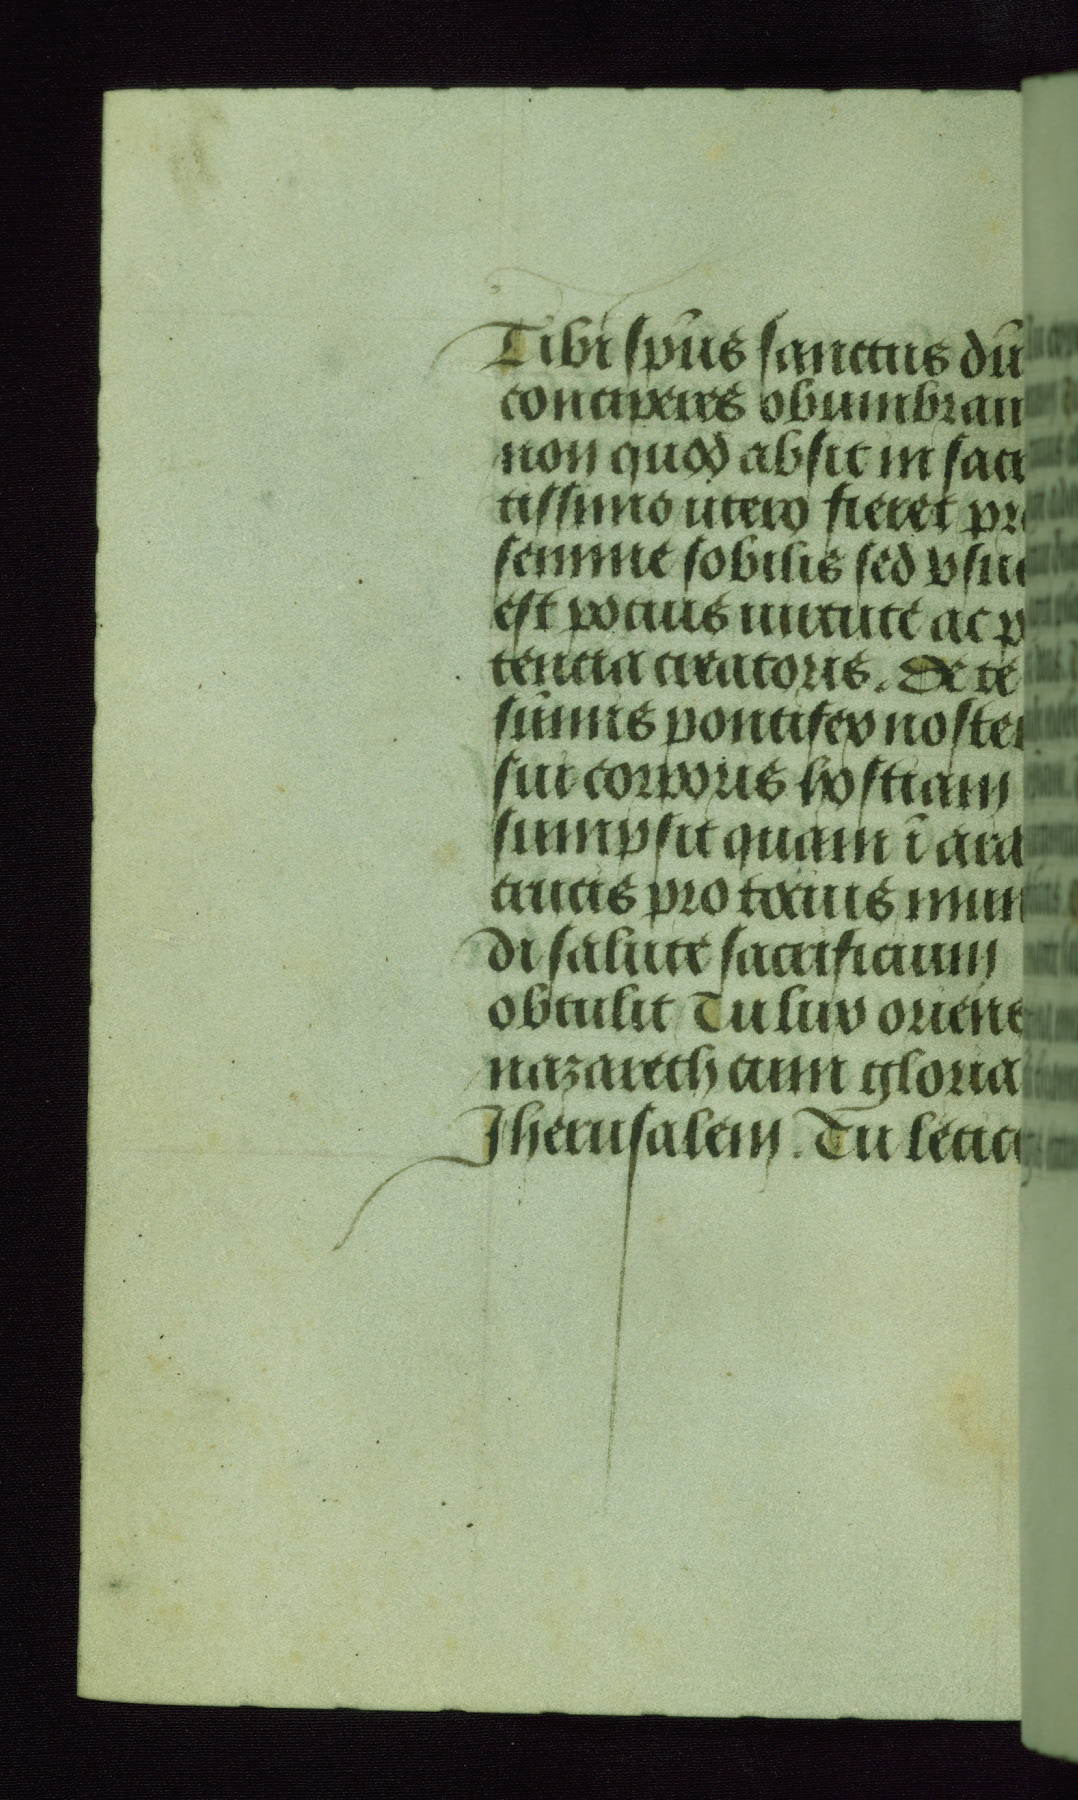 Tibi spūs sanctus dū
conciperes obumbraui
non quod absit in sacr
tissimo utero fieret pr
semine sobilis sed vsu
est pocius uirtute ac p
tencia creatoris. De te
sūmus pontifex noster
sui corporis hostiam
sumpsit quam ī ara
crucis pro tocius mun
di salute sacrificium
obtulit Tu lux oriens
nazareth cum gloria
Jherusalem. Tu letici